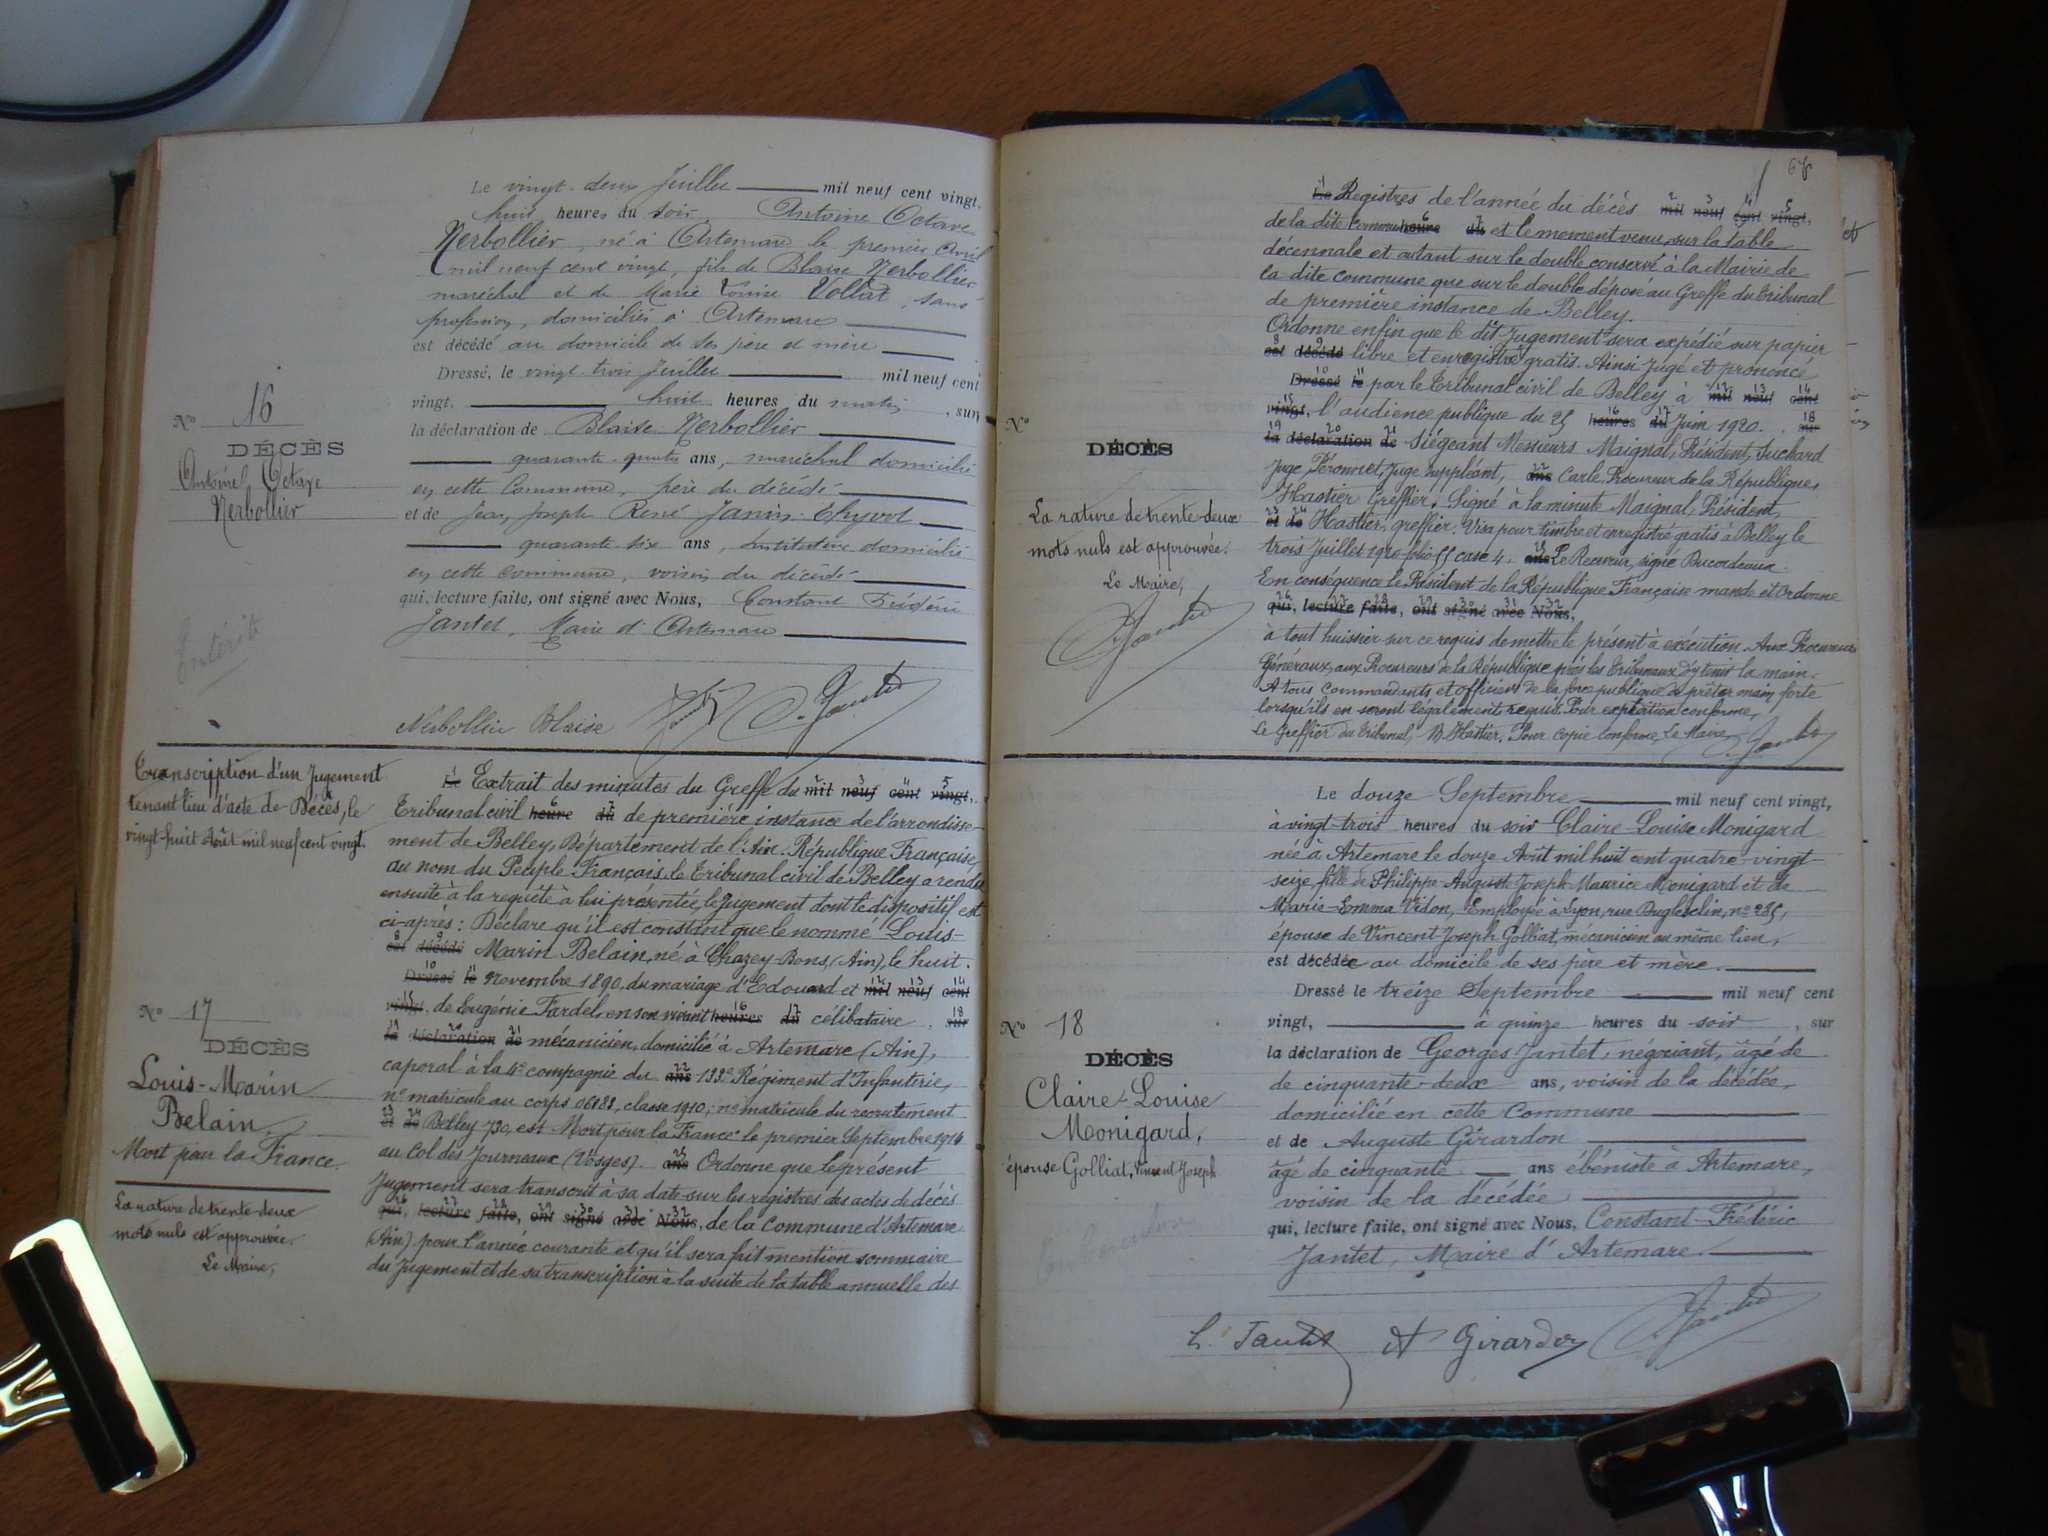 Le vingt-deux Juillet mil neuf cent vingt,
huit heures du soir Antoine Octave
Nerbollier, né à Artemare le premier Avril
mil neuf cent vingt, fils de Blaise Nerbollier
maréchal et de Marie Louise Vollat, sans
profession, domiciliés à Artemare
est décédé au domicile de ses père et mère
Dressé, le vingt trois Juillet mil neuf cent
vingt, huit heures du matin, sur
la déclaration de Blaise Nerbollier
quarante-quatre ans, maréchal domicilié
en cette Commune, père du décédé
et de Jean Joseph René Janin-Thyvol
quarante six ans, instituteur domicilié
en cette commune, voisin du décédé
qui, lecture faite, ont signé avec Nous, Constant Frédéric
Jantet, Maire d'Artemare
Nº 16
DÉCÈS
Antoine Octave
Nerbollier
Nerbollier Blaise
Transcription d'un Jugement
tenant lieu d'acte de Décès, le
vingt-huit Août mil neuf cent vingt.
Nº 17
DÉCÈS
Louis-Marin
Belain.
Mort pour la France.
La rature de trente-deux
mots nuls est approuvée.
Le Maire,
Le Extrait des minutes du Greffe du mil neuf cent vingt,
Tribunal civil heure du de première instance de l'arrondisse-
ment de Belley, Département de l'Ain. République Française,
au nom du Peuple Français, le Tribunal civil de Belley a rendu
ensuite à la requête à lui présentée, le Jugement dont le dispositif est
ci-après: Déclare qu'il est constant que le nommé Louis-
est décédé Marin Belain, né à Chazey-Bons, (Ain), le huit
Dressé le Novembre 1890, du mariage d'Edouard et mil neuf cent
vingt, de Eugénie Fardel, en son vivant heures du célibataire, sur
la déclaration de mécanicien, domicilié à Artemare (Ain),
caporal à la 4e compagnie du ans 133e Régiment d'Infanterie,
nº matricule au corps 06188, classe 1910; nº matricule du recrutement
et de Belley 730, est "Mort pour la France" le premier Septembre 1914
au Col des Journeaux (Vosges). ans Ordonne que le présent
Jugement sera transcrit à sa date sur les registres des actes de décès
qui, lecture faite, ont signé avec Nous, de la Commune d'Artemare
(Ain) pour l'année courante et qu'il sera fait mention sommaire
du Jugement et de sa transcription à la suite de la table annuelle des
Le Registres de l'année du décès mil neuf cent vingt,
de la dite Commune heure du et le moment venu, sur la table
décennale et autant sur le double conservé à la Mairie de
la dite commune que sur le double déposé au Greffe du tribunal
de première instance de Belley.
Ordonne enfin que le dit Jugement sera expédié sur papier
est décédé libre et enregistré gratis. Ainsi Jugé et prononcé
Dressé le par le Tribunal civil de Belley à mil neuf cent
vingt, l'audience publique du 25 heures du Juin 1920. sur
la déclaration de Siégeant Messieurs Maignal, Président, Suchard
Juge, Péronnet, Juge suppléant, ans Carle, Procureur de la République,
Hastier Greffier. Signé à la minute Maignal, Président,
et de Hastier, greffier. Visa pour timbre et enregistré gratis à Belley le
trois Juillet 1920 folio 55 case 4, ans Le Receveur, signé Ducordeaux.
En conséquence le Président de la République Française mande et ordonne
qui, lecture faite, ont signé avec Nous,
à tout huissier sur ce requis de mettre le présent à exécution. Aux Procureurs
Généraux, aux Procureurs de la République près les tribunaux d'y tenir la main.
A tous commandants et officiers de la force publique de prêter main forte
lorsqu'ils en seront légalement requis. Pour expédition conforme,
Le Greffier du tribunal, Hastier. Pour copie conforme, Le Maire,
Nº
DÉCÈS
La rature de trente-deux
mots nuls est approuvée.
Le Maire,
Le douze Septembre mil neuf cent vingt,
à vingt-trois heures du soir Claire Louise Monigard
née à Artemare le douze Août mil huit cent quatre-vingt-
seize, fille de Philippe-Auguste Joseph Maurice Monigard et de
Marie-Emma Vidon, Employée à Lyon, rue Duglesclin, nº 235,
épouse de Vincent Joseph Golliat, mécanicien au même lieu,
est décédée au domicile de ses père et mère.
Dressé le treize Septembre mil neuf cent
vingt, à quinze heures du soir, sur
la déclaration de Georges Jantet, négociant, âgé de
de cinquante-deux ans, voisin de la décédée,
domicilié en cette Commune
et de Auguste Girardon
âgé de cinquante ans ébéniste à Artemare,
voisin de la décédée
qui, lecture faite, ont signé avec Nous, Constant-Frédéric
Jantet, Maire d'Artemare.
Nº 18
DÉCÈS
Claire-Louise
Monigard,
épouse Golliat, Vincent Joseph
G. Jantet A Girardon C. Jantet